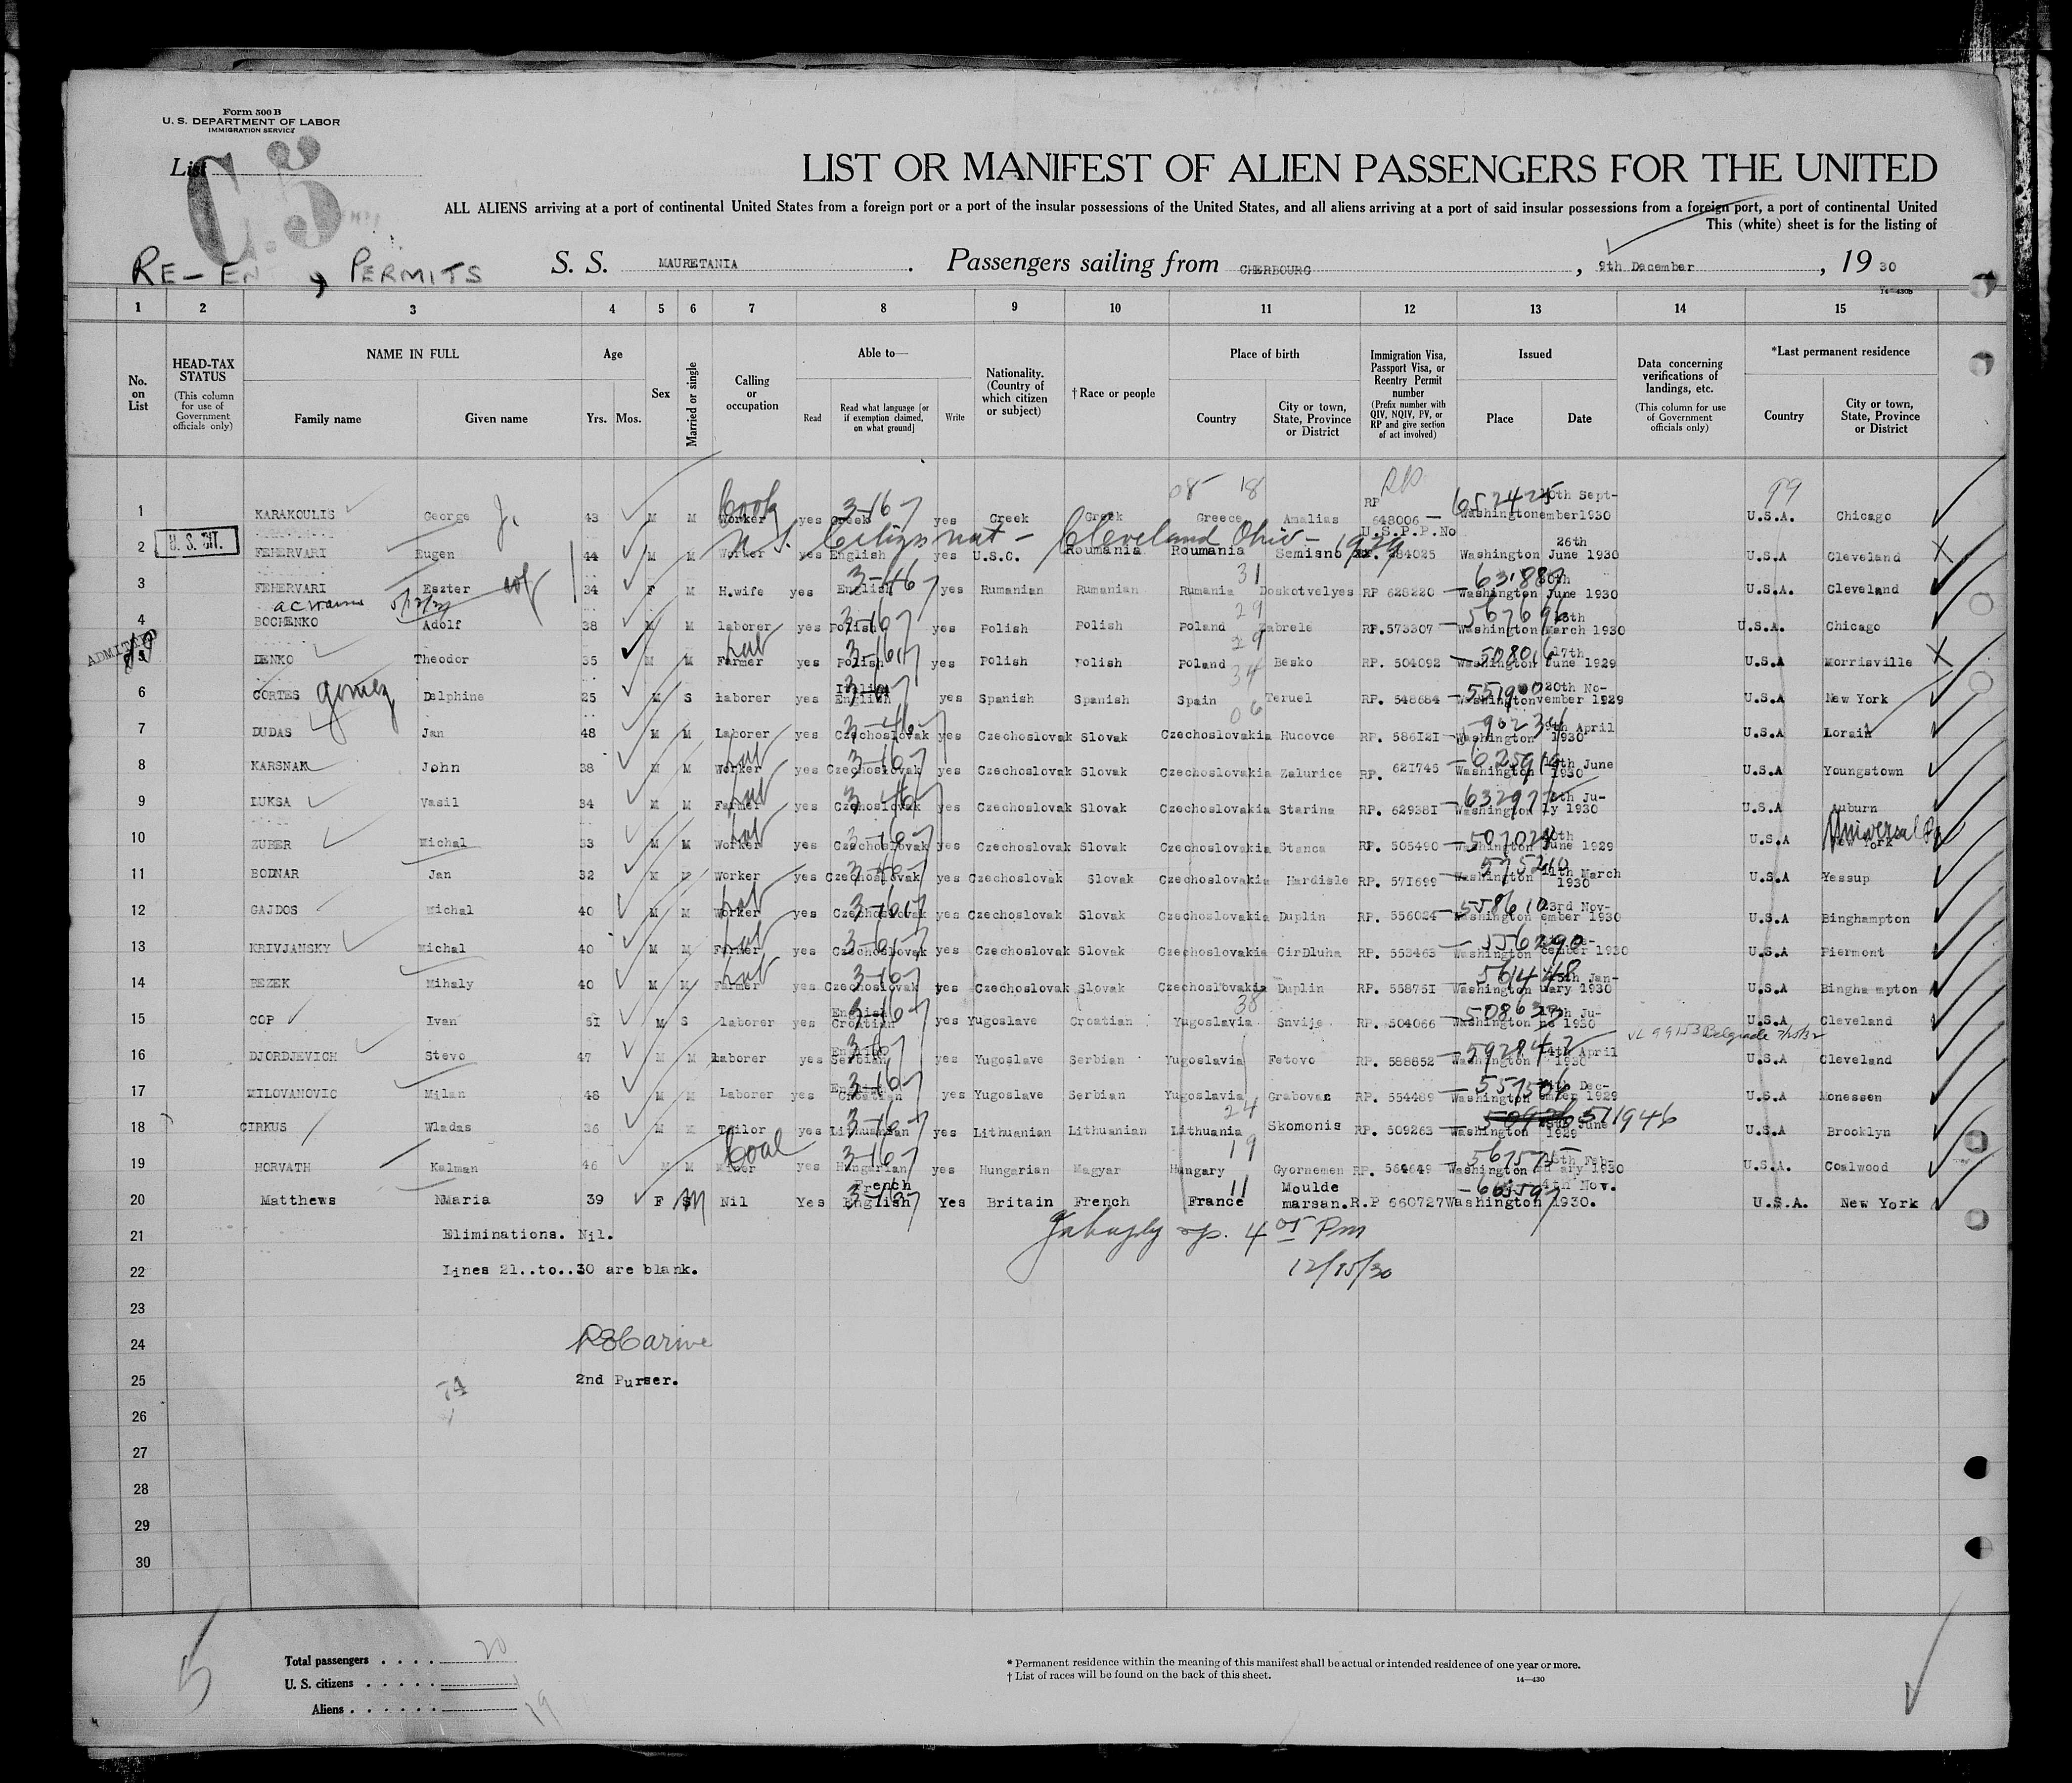 Form 500 B
U. S. DEPARTMENT OF LABOR
IMMIGRATION SERVICE
List
C.5
LIST OR MANIFEST OF ALIEN PASSENGERS FOR THE UNITED
ALL ALIENS arriving at a port of continental United States from a foreign port or a port of the insular possessions of the United States, and all aliens arriving at a port of said insular possessions from a foreign port, a port of continental United
This (white) sheet is for the listing of
RE-EN PERMITS S. S. MAURETANIA . Passengers sailing from CHERBOURG , 9th December , 19 30
1 2 3 4 5 6 7 8 9 10 11 12 13 14 15
No. on List
HEAD-TAX STATUS (This column for use of Government officials only)
NAME IN FULL
Family name Given name
Age
Yrs. Mos.
Sex
Married or single
Calling or occupation
Able to—
Read Read what language [or if exemption claimed, on what ground] Write
Nationality. (Country of which citizen or subject)
†Race or people
Place of birth
Country City or town, State, Province or District
Immigration Visa, Passport Visa, or Reentry Permit number (Prefix number with QIV, NQIV, PV, or RP and give section of act involved)
Issued
Place Date
Data concerning verifications of landings, etc. (This column for use of Government officials only)
*Last permanent residence
Country City or town, State, Province or District
1 KARAKOULIS George 43 M M Worker Cook yes Greek yes Greek Greek Greece Amalias RP 648006 Washington 10th September 1930 U.S.A. Chicago
2 U. S. CIT. FEHERVARI Eugen 44 M M Worker yes English yes U.S.C. Roumania Roumania Semisno U.S.P.P.No 284025 Washington 26th June 1930 U.S.A Cleveland
U.S. Citizen nat - Cleveland Ohio - 1929
3 FEHERVARI Eszter wf 34 F M H.wife yes English yes Rumanian Rumanian Rumania Doskotvelyes RP 628220 Washington June 1930 U.S.A. Cleveland
4 BOCHENKO Adolf 38 M M laborer yes Polish yes Polish Polish Poland Zabrele RP.573307 Washington March 1930 U.S.A. Chicago
ADMITTED
5 DENKO Theodor 35 M M Farmer yes Polish yes Polish Polish Poland Besko RP. 504092 Washington 17th June 1929 U.S.A Morrisville
6 CORTES Gomez Delphine 25 M S laborer yes English yes Spanish Spanish Spain Teruel RP. 548684 Washington 20th November 1929 U.S.A New York
7 DUDAS Jan 48 M M Laborer yes Czechoslovak yes Czechoslovak Slovak Czechoslovakia Hucovce RP. 586121 Washington April 1930 U.S.A Lorain
8 KARSNAK John 38 M M Worker yes Czechoslovak yes Czechoslovak Slovak Czechoslovakia Zalurice RP. 621745 Washington June 1930 U.S.A Youngstown
9 LUKSA Vasil 34 M M Farmer yes Czechoslovak yes Czechoslovak Slovak Czechoslovakia Starina RP. 629381 Washington July 1930 U.S.A Auburn
10 ZUBER Michal 33 M M Worker yes Czechoslovak yes Czechoslovak Slovak Czechoslovakia Stanca RP. 505490 Washington June 1929 U.S.A New York Universal Pa
11 BODNAR Jan 32 M M Worker yes Czechoslovak yes Czechoslovak Slovak Czechoslovakia Hardisle RP. 571699 Washington March 1930 U.S.A Yessup
12 GAJDOS Michal 40 M M Worker yes Czechoslovak yes Czechoslovak Slovak Czechoslovakia Duplin RP. 556024 Washington 23rd November 1930 U.S.A Binghampton
13 KRIVJANSKY Michal 40 M M Farmer yes Czechoslovak yes Czechoslovak Slovak Czechoslovakia CirDluha RP. 553463 Washington 1930 U.S.A Piermont
14 BEZEK Mihaly 40 M M Farmer yes Czechoslovak yes Czechoslovak Slovak Czechoslovakia Duplin RP. 558751 Washington January 1930 U.S.A Binghampton
15 COP Ivan 51 M S laborer yes English Croatian yes Yugoslave Croatian Yugoslavia Snvije RP. 504066 Washington June 1930 U.S.A Cleveland
16 DJORDJEVICH Stevo 47 M M laborer yes Serbian yes Yugoslave Serbian Yugoslavia Fetovo RP. 588852 Washington April 1930 U.S.A Cleveland
17 MILOVANOVIC Milan 48 M M Laborer yes English Croatian yes Yugoslave Serbian Yugoslavia Grabovac RP. 554489 Washington December 1929 U.S.A Monessen
18 CIRKUS Wladas 36 M M Tailor yes Lithuanian yes Lithuanian Lithuanian Lithuania Skomonis RP. 509263 Washington June 1929 511946 U.S.A Brooklyn
19 HORVATH Kalman 46 M M Miner Coal yes Hungarian yes Hungarian Magyar Hungary Gyornemen RP. 564649 Washington February 1930 U.S.A. Coalwood
20 Matthews NMaria 39 F M Nil Yes French English Yes Britain French France Moulde marsan. R.P 660727 Washington 4th Nov. 1930. U.S.A. New York
21 Eliminations. Nil.
4 05 Pm
22 Lines 21..to..30 are blank.
12/15/30
23
24
25 2nd Purser.
26
27
28
29
30
Total passengers . . . . 20
U. S. citizens . . . . . 1
Aliens . . . . . . 19
* Permanent residence within the meaning of this manifest shall be actual or intended residence of one year or more.
† List of races will be found on the back of this sheet.
14—430